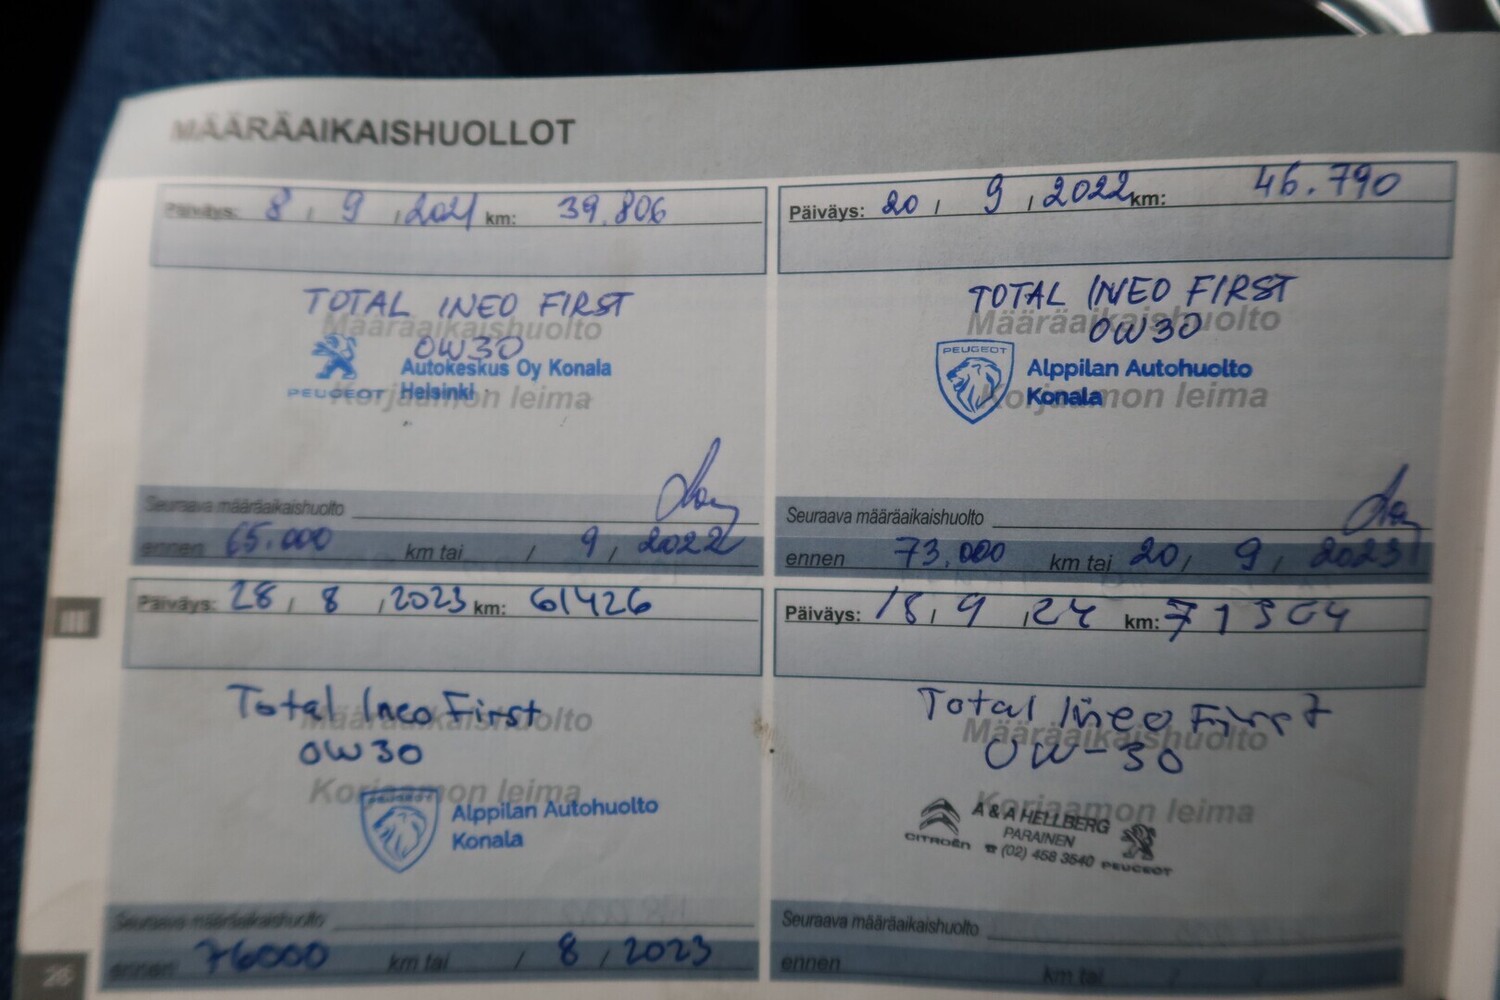 MÄÄRÄAIKAISHUOLLOT
Päiväys: 8 / 9 / 2021 km: 39.806
TOTAL INEO FIRST
Määräaikaishuolto
0W30
Autokeskus Oy Konala
PEUGEOT Helsinki
Korjaamon leima
Seuraava määräaikaishuolto
ennen 65.000 km tai / 9 / 2022
Päiväys: 20 / 9 / 2022 km: 46.790
TOTAL INEO FIRST
Määräaikaishuolto
0W30
PEUGEOT
Alppilan Autohuolto
Konala
Korjaamon leima
Seuraava määräaikaishuolto
ennen 73.000 km tai 20 / 9 / 2023
III
Päiväys: 28 / 8 / 2023 km: 61426
Total Ineo First
Määräaikaishuolto
0W30
Korjaamon leima
PEUGEOT
Alppilan Autohuolto
Konala
Seuraava määräaikaishuolto
ennen 76000 km tai / 8 / 2023
Päiväys: 18 / 9 / 24 km: 71304
Total Ineo First
Määräaikaishuolto
0W-30
Korjaamon leima
A & A HELLBERG
PARAINEN
CITROËN ☎ (02) 458 3540 PEUGEOT
Seuraava määräaikaishuolto
ennen km tai / /
26